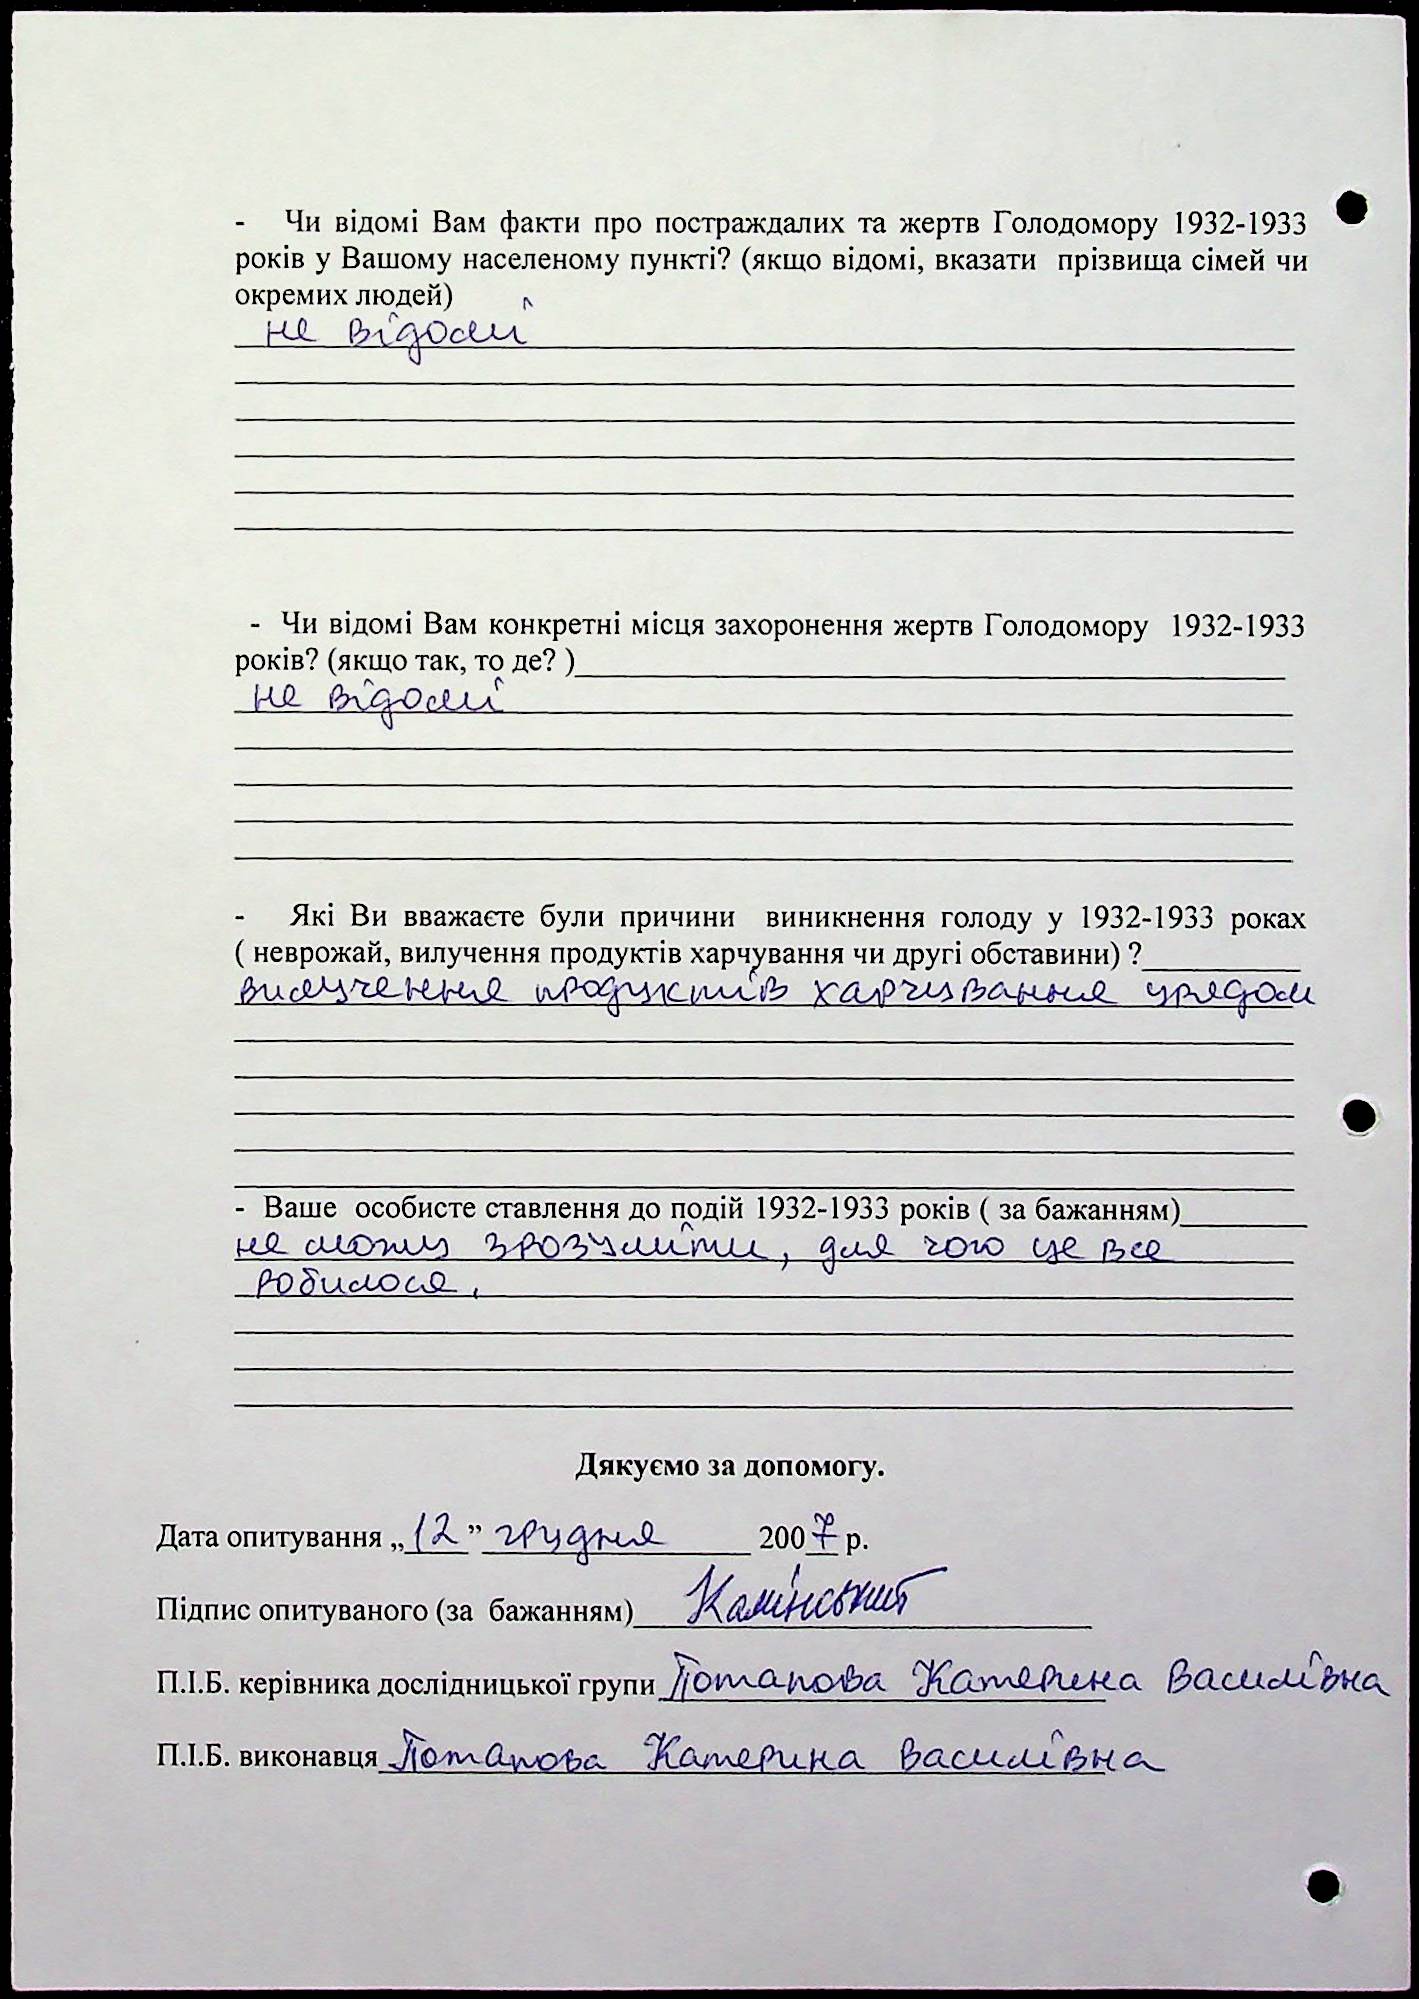 - Чи відомі Вам факти про постраждалих та жертв Голодомору 1932-1933
років у Вашому населеному пункті? (якщо відомі, вказати прізвища сімей чи
окремих людей)
не відомі
- Чи відомі Вам конкретні місця захоронення жертв Голодомору 1932-1933
років? (якщо так, то де? )
не відомі
- Які Ви вважаєте були причини виникнення голоду у 1932-1933 роках
( неврожай, вилучення продуктів харчування чи другі обставини) ?
вилучення продуктів харчування урядом
- Ваше особисте ставлення до подій 1932-1933 років ( за бажанням)
не можу зрозуміти, для чого це все
робилося.
Дякуємо за допомогу.
Дата опитування „12” грудня 2007 р.
Підпис опитуваного (за бажанням) Камінський
П.І.Б. керівника дослідницької групи Потапова Катерина Василівна
П.І.Б. виконавця Потапова Катерина Василівна